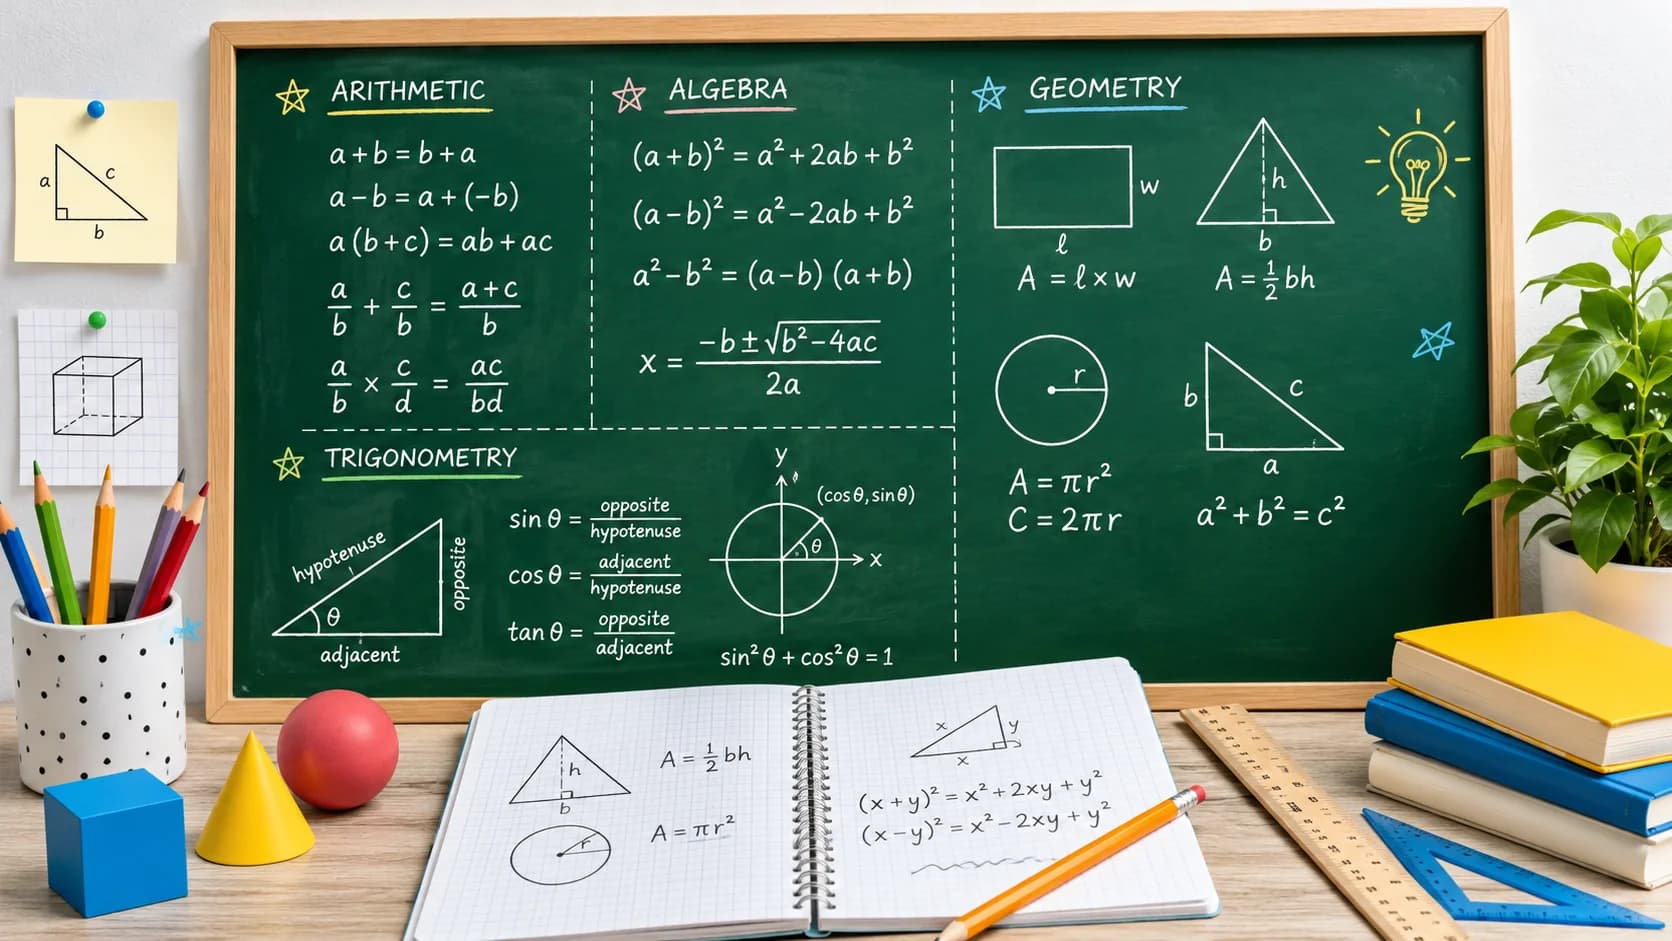 ARITHMETIC
a + b = b + a
a − b = a + (−b)
a (b + c) = ab + ac
a/b + c/b = a+c/b
a/b × c/d = ac/bd
ALGEBRA
(a + b)² = a² + 2ab + b²
(a − b)² = a² − 2ab + b²
a² − b² = (a − b) (a + b)
x = −b ± √b² − 4ac / 2a
GEOMETRY
w
ℓ
A = ℓ × w
h
b
A = ½ bh
r
A = πr²
C = 2πr
b
c
a
a² + b² = c²
TRIGONOMETRY
hypotenuse
opposite
θ
adjacent
sin θ = opposite/hypotenuse
cos θ = adjacent/hypotenuse
tan θ = opposite/adjacent
y
(cos θ, sin θ)
θ
x
sin² θ + cos² θ = 1
a
c
b
h
b
A = ½ bh
r
A = πr²
x
y
x
(x + y)² = x² + 2xy + y²
(x − y)² = x² − 2xy + y²